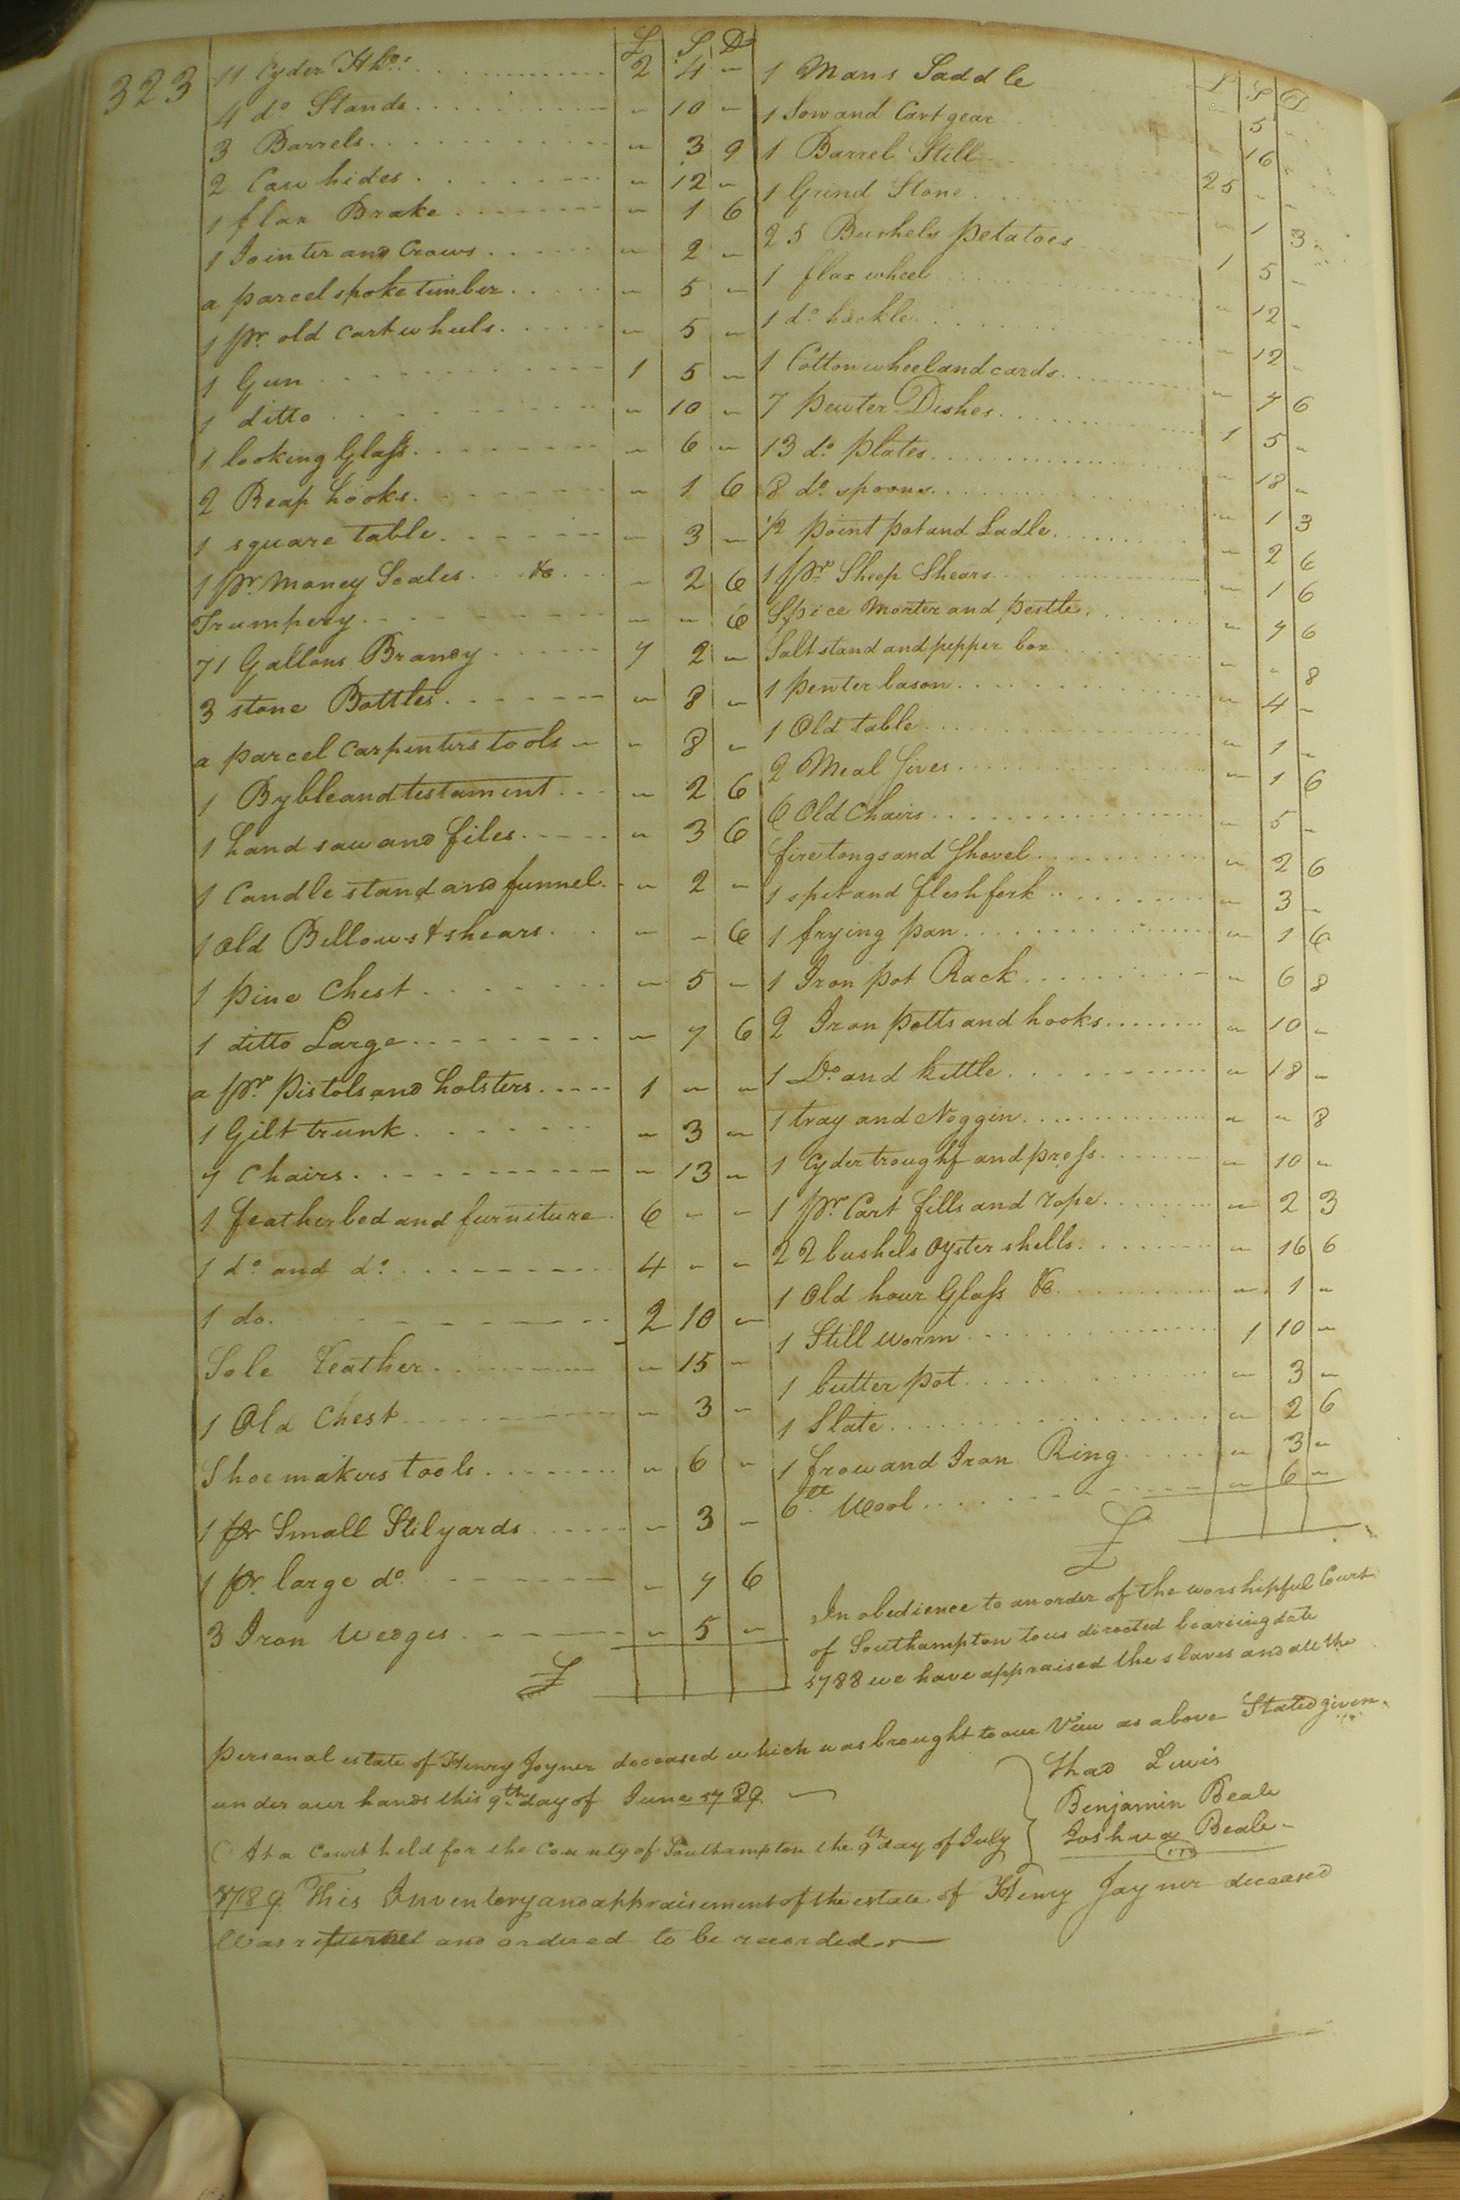 323
£ S D
11 Cyder Hhds. 2 4 -
4 do Stands - 10 -
3 Barrels - 3 9
2 Cow hides - 12 -
1 flax Brake - 1 6
1 Jointer and Crows - 2 -
a parcel spoke timber - 5 -
1 pr. old cart wheels - 5 -
1 Gun 1 5 -
1 ditto - 10 -
1 looking Glass - 6 -
2 Reap hooks - 1 6
1 square table - 3 -
1 pr. Money Scales &c - 2 6
Trumpery - - 6
71 Gallons Brandy 7 2 -
3 stone Bottles - 8 -
a parcel carpenters tools - 8 -
1 Byble and testament - 2 6
1 hand saw and files - 3 6
1 Candle stand and funnel - 2 -
1 Old Bellows & shears - - 6
1 pine Chest - 5 -
1 ditto Large - 7 6
a pr. pistols and holsters 1 - -
1 Gilt trunk - 3 -
7 Chairs - 13 -
1 featherbed and furniture 6 - -
1 do. and do. 4 - -
1 do. 2 10 -
Sole leather - 15 -
1 Old Chest - 3 -
Shoemakers tools - 6 -
1 pr Small Stilyards - 3 -
1 pr. large do. - 7 6
3 Iron Wedges - 5 -
£
£ S D
1 Mans Saddle - 5 -
1 Sow and Cart gear - 16 -
1 Barrel Still 25 - -
1 Grind Stone - 1 3
25 Bushels petatoes 1 5 -
1 flax wheel - 12 -
1 do. hackle - 12 -
1 Cotton wheel and cards - 7 6
7 pewter Dishes 1 5 -
13 do. plates - 18 -
8 do. spoons - 1 3
1/2 point pot and Ladle - 2 6
1 pr. Sheep Shears - 1 6
Spice Morter and pestle - 7 6
Salt stand and pepper box - - 8
1 pewter bason - 4 -
1 Old table - 1 -
2 Meal sives - 1 6
6 Old Chairs - 5 -
fire tongs and Shovel - 2 6
1 spit and flesh fork - 3 -
1 frying pan - 1 6
1 Iron pot Rack - 6 8
2 Iron potts and hooks - 10 -
1 Do. and kettle - 18 -
1 tray and Noggin - - 8
1 Cyder trought and press - 10 -
1 pr. Cart fills and rope - 2 3
22 bushels Oyster shells - 16 6
1 Old hour Glass &c - 1 -
1 Still worm 1 10 -
1 butter pot - 3 -
1 Slate - 2 6
1 frow and Iron Ring - 3 -
6 lb. Wool - 6 -
£
In obedience to an order of the worshipful Court
of Southampton to us directed bearing date
1788 we have appraised the slaves and all the
personal estate of Henry Joyner deceased which was brought to our View as above Stated given
under our hands this 9th day of June 1789
Thad Lewis
Benjamin Beale
Joshua Beale
At a Court held for the County of Southampton the 9th day of July
1789 This Inventory and appraisement of the estate of Henry Joyner deceased
Was returned and ordered to be recorded